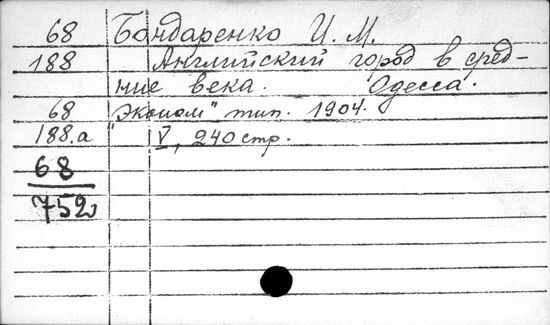 68 Бондаренко И. М.
188 Английский город в сред-
ние века. Одесса.
68 „Эконом" тип. 1904.
188.a V, 240 стр.
68
752